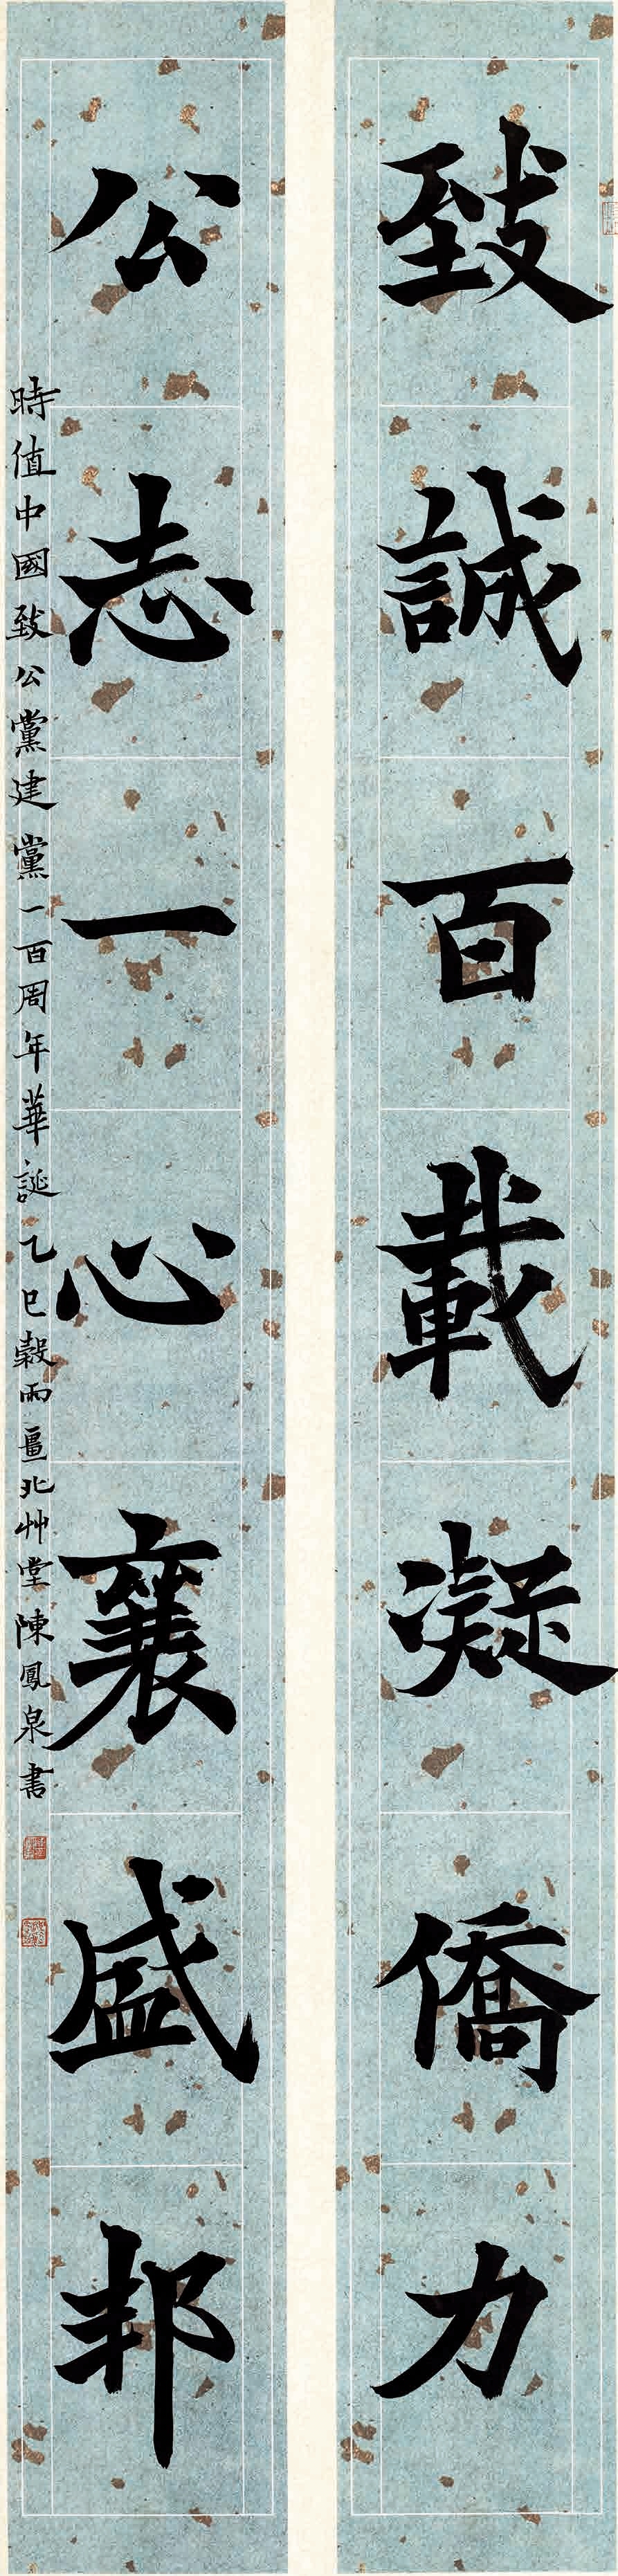 致誠百載凝僑力
公志一心襄盛邦
時值中國致公黨建黨一百周年華誕乙巳穀雨畺北艸堂陳鳳泉書